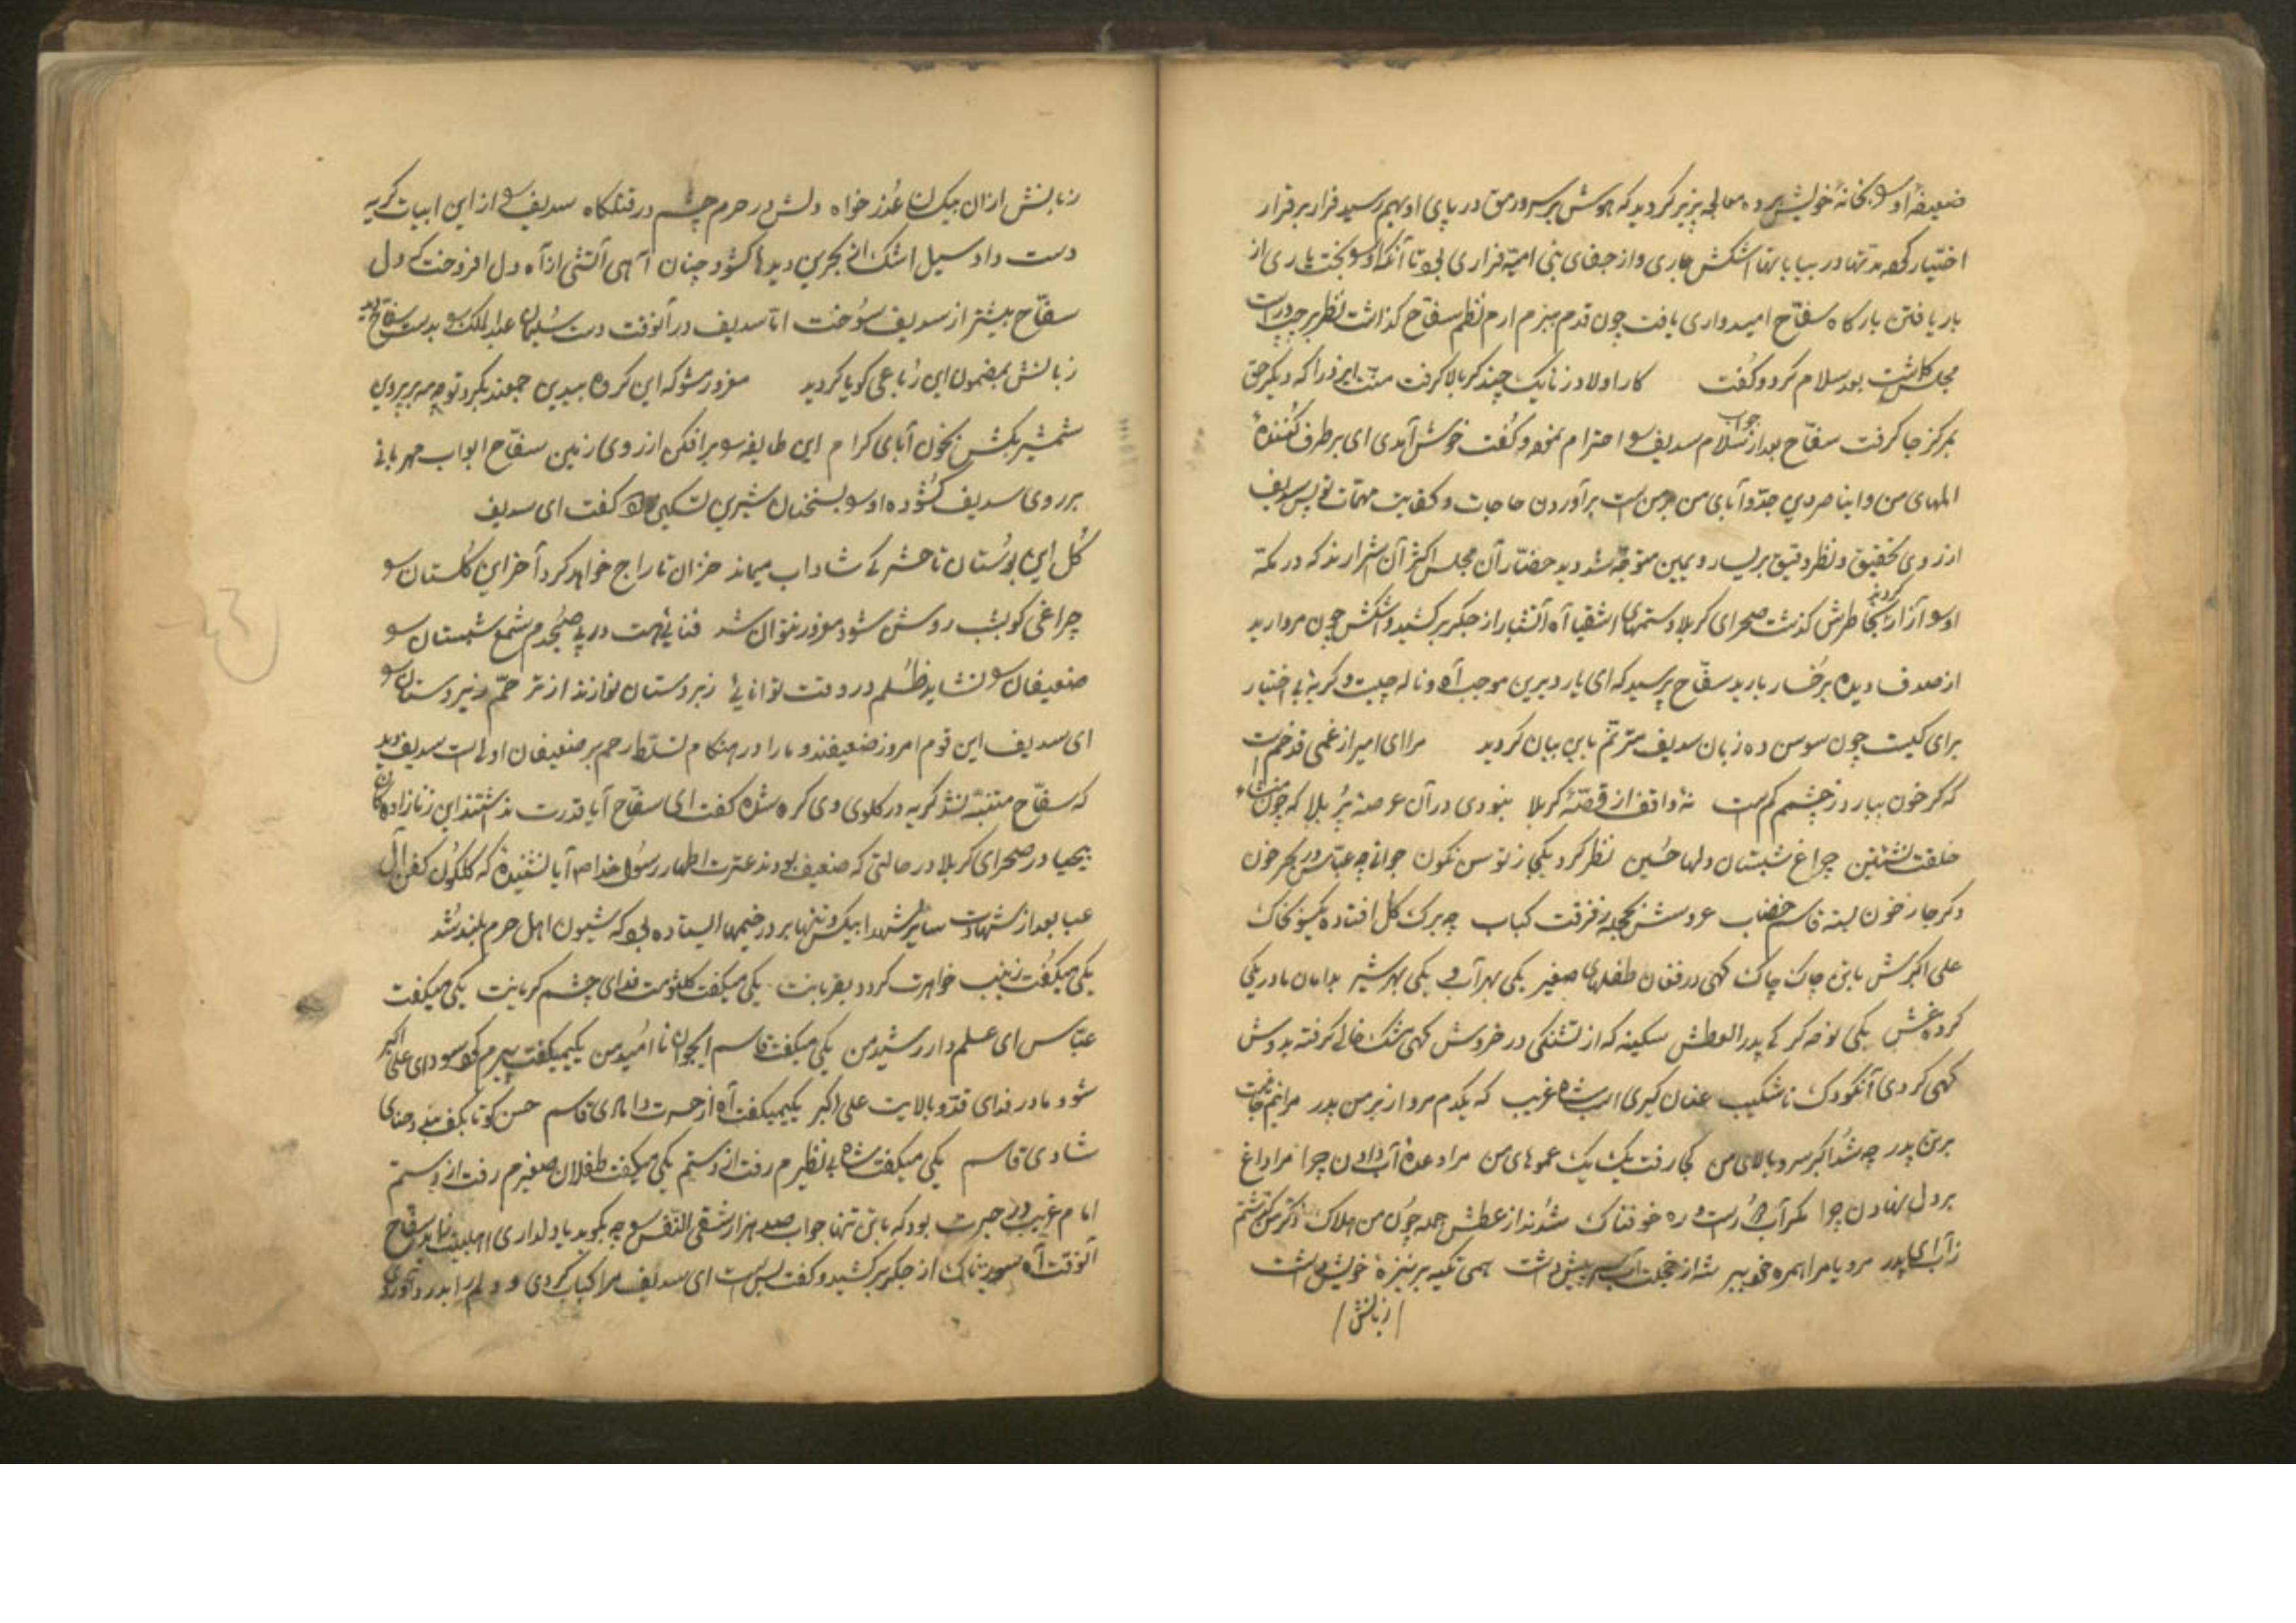 ضعیفه او را بخانهٔ خویش برده معالجه پزیر کردید که هوش بر سر و رمق در پای او بهم رسید فرار بر قرار
اختیار کرده تنها در بیابانها اشکش جاری و از جفای بنی امیه فراری بود تا آنکه او را بخت یاری از
بار یافتن بارکاه سفّاح امیدواری یافت چون قدم ببزم ارم نظم سفّاح کذاشت نظر بر چپ و راست
مجلس کماشت بعد سلام کرد و کفت کار اولاد زنا یک چند کر بالا کرفت منّت ایزد را که دیکر حق
بمرکز جا کرفت سفّاح بعد از جواب سلام سدیف را احترام نموده و کفت خوش آمدی ای بر طرف کنندهٔ
المهای من و ای ناصر دین جدّ و آبای من بر من است بر آوردن حاجات و کفایت مهمّات تو پس سدیف
از روی تحقیق و نظر دقیق بر یسار و یمین متوجّه شد دید حضّار آن مجلس اکثر آن شرارند که در مکّه
او را آزار کردند بخاطرش کذشت صحرای کربلا و ستمهای اشقیا آه آتشبار از جکر بر کشید و اشکش چون مروارید
از صدف دیده بر رخسار بارید سفّاح پرسید که ای یار دیرین موجب آه و ناله چیست و کریهٔ بی اختیار
برای کیست چون سوسن ده زبان سدیف مترنّم باین بیان کردید مرا ای امیر از غمی قد خم است
که کر خون ببارد ز چشمم کم است نهٔ واقف از قصّهٔ کربلا نبودی در آن عرصهٔ پُر بلا که چون
خلقت نشئتین چراغ شبستان دلها حسین نظر کرد یکجا ز توسن نکون جوانی چه عبّاس در بحر خون
دکر جا ز خون بسته قاسم خضاب عروسش بحجله ز فرقت کباب چه برک کل افتاده یکسو بخاک
علی اکبرش با تن چاک چاک کهی در فغان طفلهای صغیر یکی بهر آب و یکی بهر شیر بدامان مادر یکی
کرده غش یکی نوحه کر کی پدر العطش سکینه که از تشنکی در خروش کهی مشک خالی کرفته بدوش
کهی کردی آنکودک ناشکیب عنان کیری اسب شاه غریب که یکدم مرو از بر من پدر مرا نیم جانست
بر تن پدر چه شد اکبر سرو بالای من کجا رفت یک یک عموهای من مرا وعدهٔ آب دادن چرا مرا داغ
بر دل نهادن چرا مکر آب دُر است و ره خوفناک شدند از عطش جمله چون من هلاک دکر من کذشتم
ز آب ای پدر مرو یا مرا همره خود ببر شه از خجلت آب سر پیش داشت همی تکیه بر نیزهٔ خویش داشت
زبانش
زبانش از ان یک لسان عُذر خواه دلش در حرم چشم در قتلکاه سدیف را از این ابیات کریه
دست داد سیل اشک از بحرین دیدها کشود چنان آهی آتشی از آه دل افروخت که دل
سفّاح بیشتر از سدیف سوخت امّا سدیف در آنوقت دست سُلیمان عبدالملک را بدست سفّاح دید
زبانش بمضمون این رُباعی کویا کردید مغرور مشو که این کروه بیدین جمعند بکرد تو چه مه بر پروین
شمشیر بکش بخون آبای کرام این طایفه را بر افکن از روی زمین سفّاح ابواب مهربانی
بر روی سدیف کشوده او را بسخنان شیرین تسکین داد کفت ای سدیف
کُل این بوستان تا حشر کی شاداب میماند خزان تاراج خواهد کرد آخر این کلستان را
چراغی کو بشب روشن شود مغرور نتوان شد فنائی هست در پی صبحدم شمع شبستان را
ضعیفان را نشاید ظُلم در وقت توانائی زبردستان نوازند از ترحّم زیردستان را
ای سدیف این قوم امروز ضعیفند و ما را در هنکام تسلّط رحم بر ضعیفان اولی است سدیف دید
که سفّاح متنبّه نشد کریه در کلوی وی کره شده کفت ای سفّاح آیا قدرت نداشتند این زنازاده کان
بیحیا در صحرای کربلا در حالتی که ضعیف بودند عترت اطهار رسُول خدا ص آیا نشنیدهٔ که کلکون کفن آل
عبا بعد از شهادت سایر شهدا بیکس و تنها بر در خیمها ایستاده بود که شیون اهل حرم بلند شد
یکی میکفت زینب خواهرت کردد بقربانت یکی میکفت کلثومت فدای چشم کریانت یکی میکفت
عبّاس ای علمدار رشید من یکی میکفت قاسم ای جوان نا امید من یکی میکفت پسرم کو سودای علی اکبر
شود مادر فدای قدّ و بالایت علی اکبر یکی میکفت آه از حسرت دامادی قاسم حسن کو تا بکف بندد حنای
شادی قاسم یکی میکفت شاه بی نظیرم رفت از دستم یکی میکفت طفلان صغیرم رفت از دستم
امام غریب در حیرت بود که با تن تنها جواب صد هزار شقی النّفس را چه بکوید یا دلداری اهلبیت نماید سفّاح
آنوقت آه سوزناک از جکر بر کشید و کفت بس است ای سدیف مرا کباب کردی و دلم را بدرد آوردی